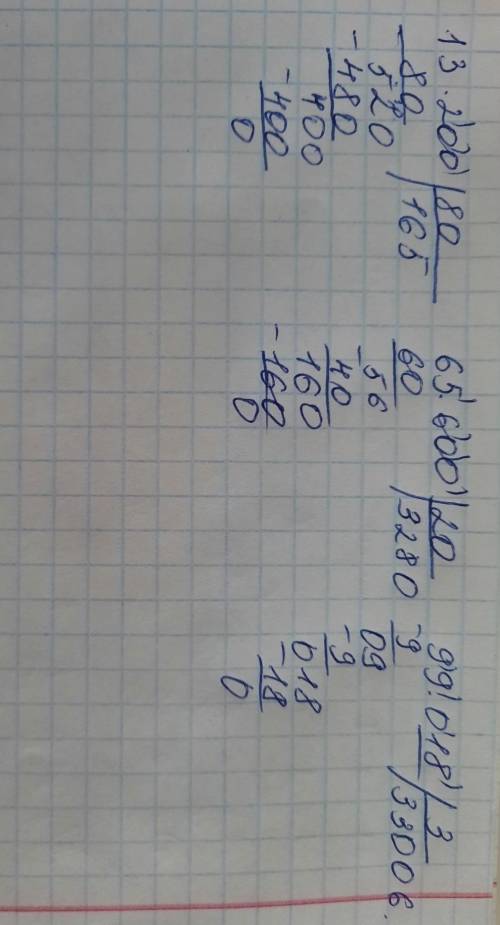 13.200 | 80
- 80 | 165
520
- 480
400
- 400
0
65.600 | 20
60 | 3280
- 56
40
160
- 160
0
99.018 | 3
- 9 | 33006.
09
- 9
018
- 18
0